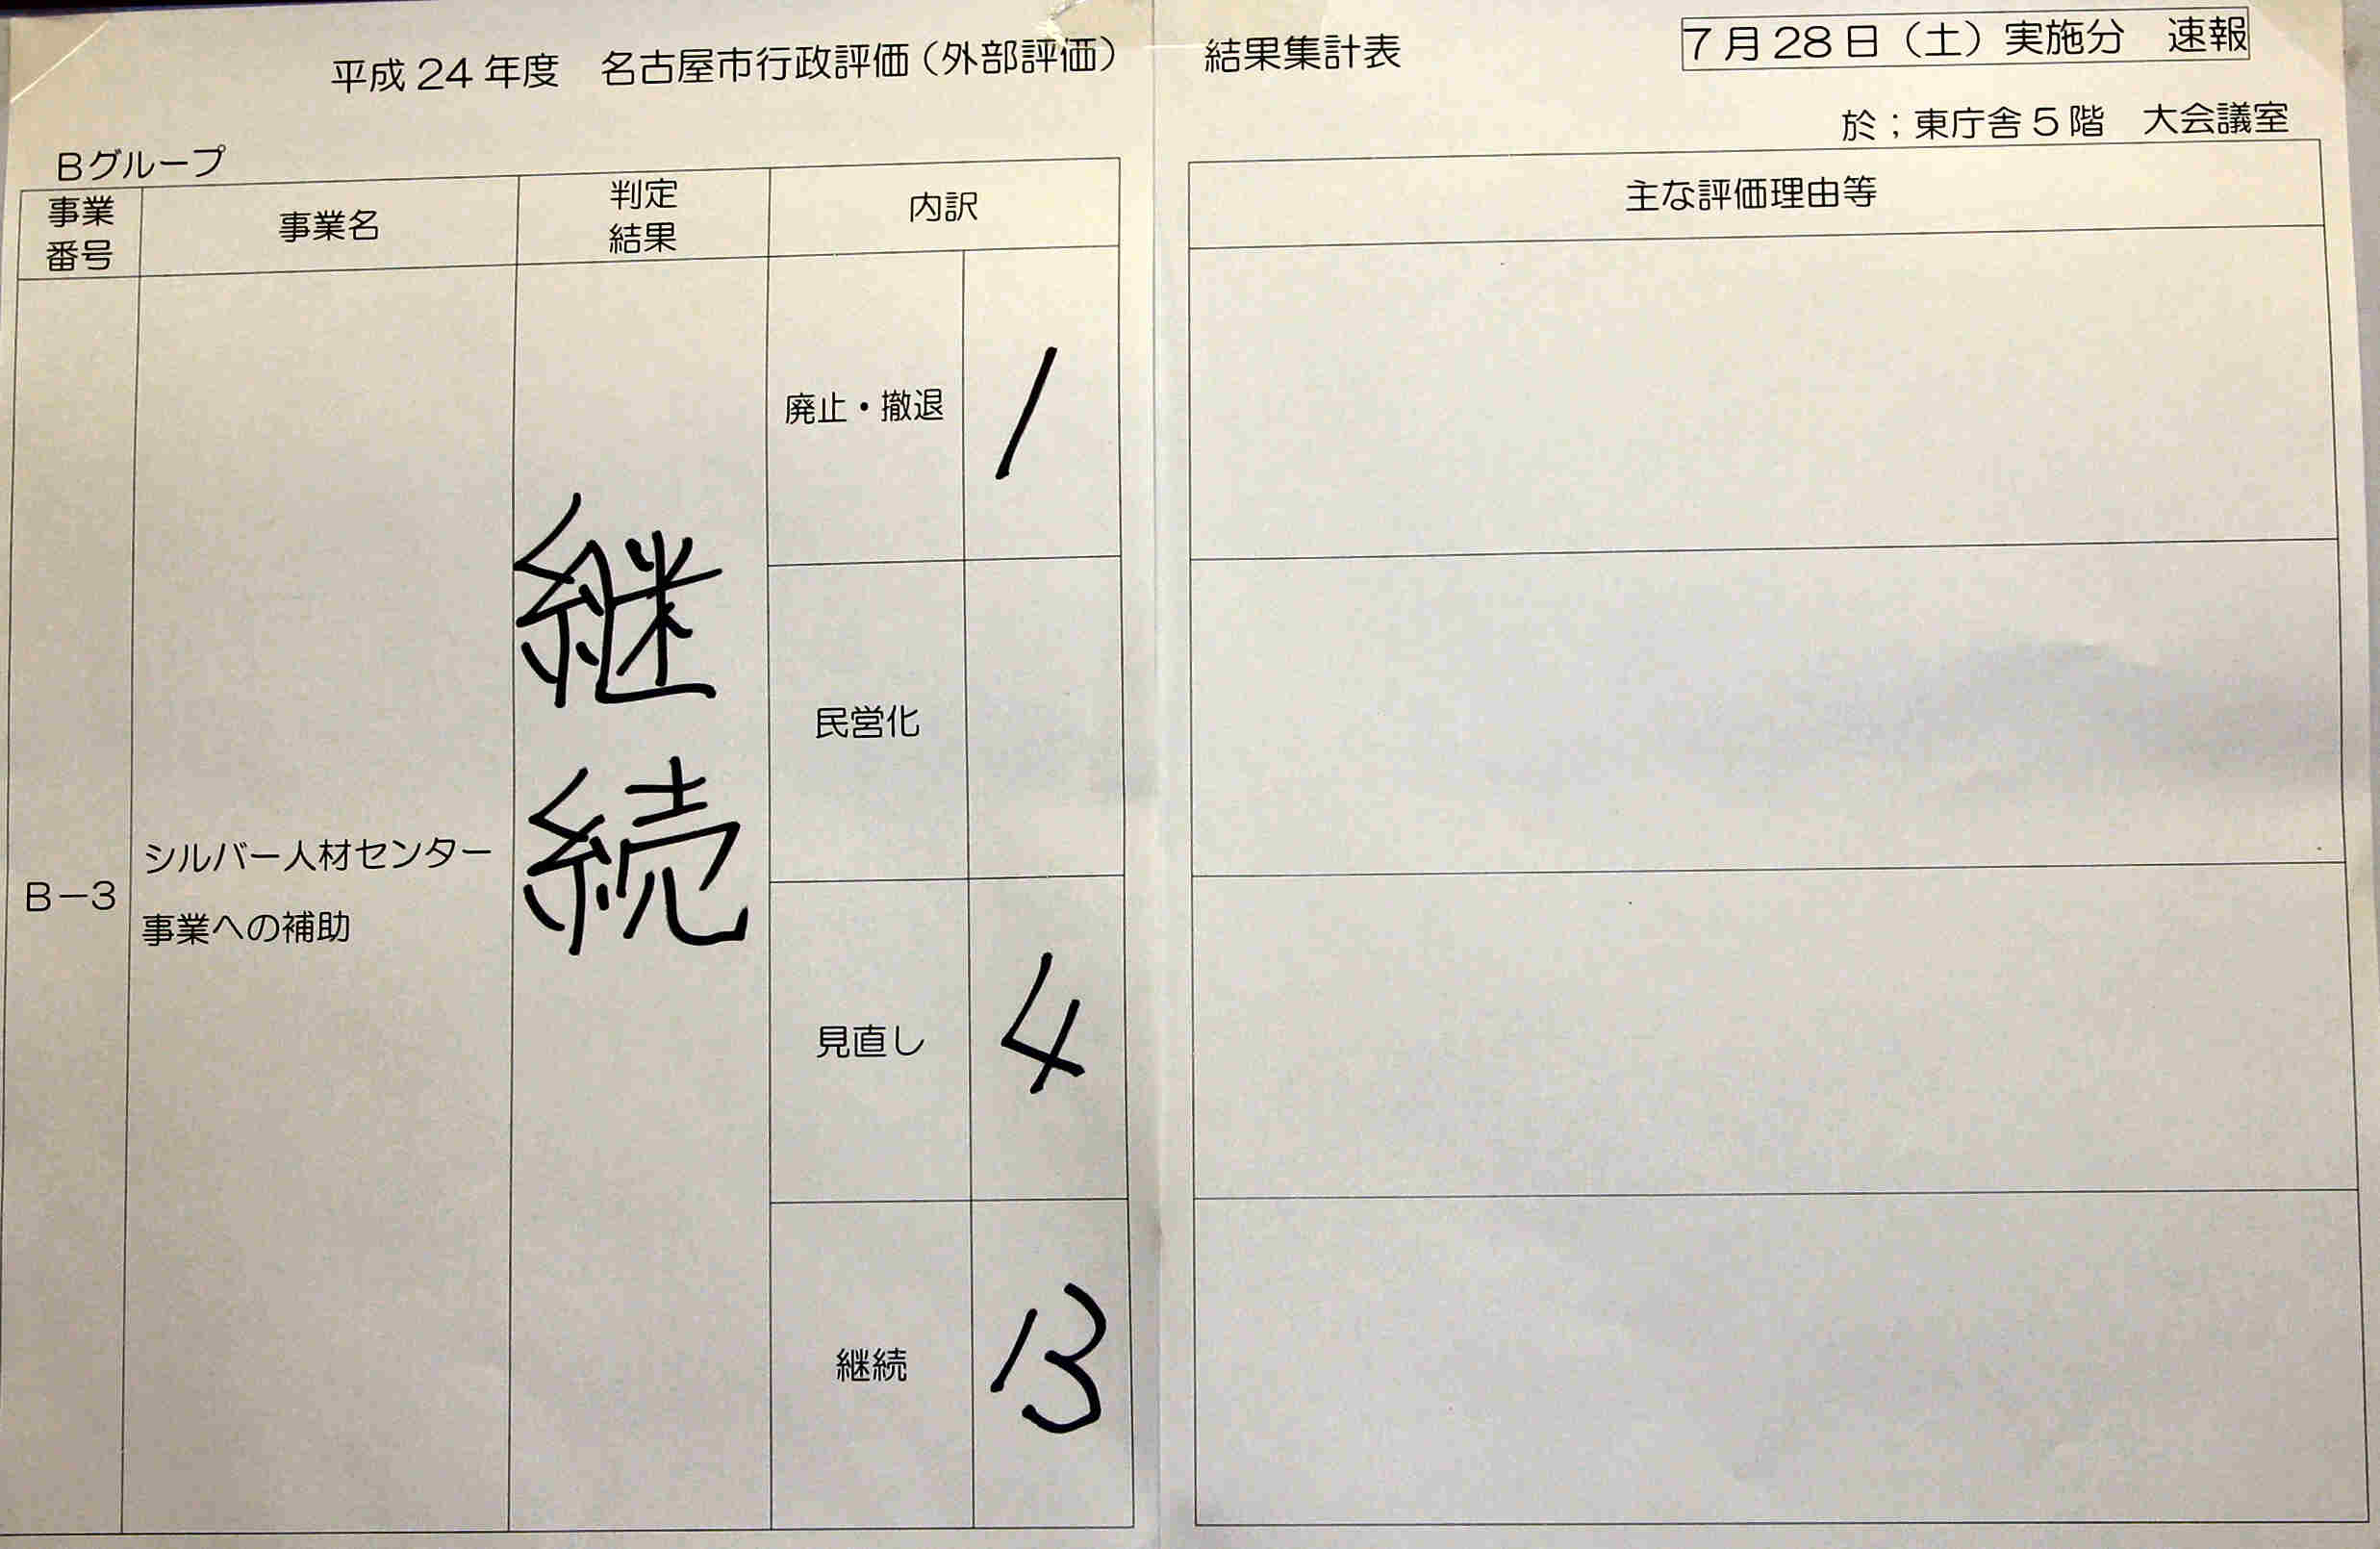 平成24年度　名古屋市行政評価（外部評価）　結果集計表
7月28日（土）実施分　速報
於；東庁舎5階　大会議室
Bグループ
事業
番号
事業名
判定
結果
内訳
主な評価理由等
B－3
シルバー人材センター
事業への補助
継
続
廃止・撤退
1
民営化
見直し
4
継続
13